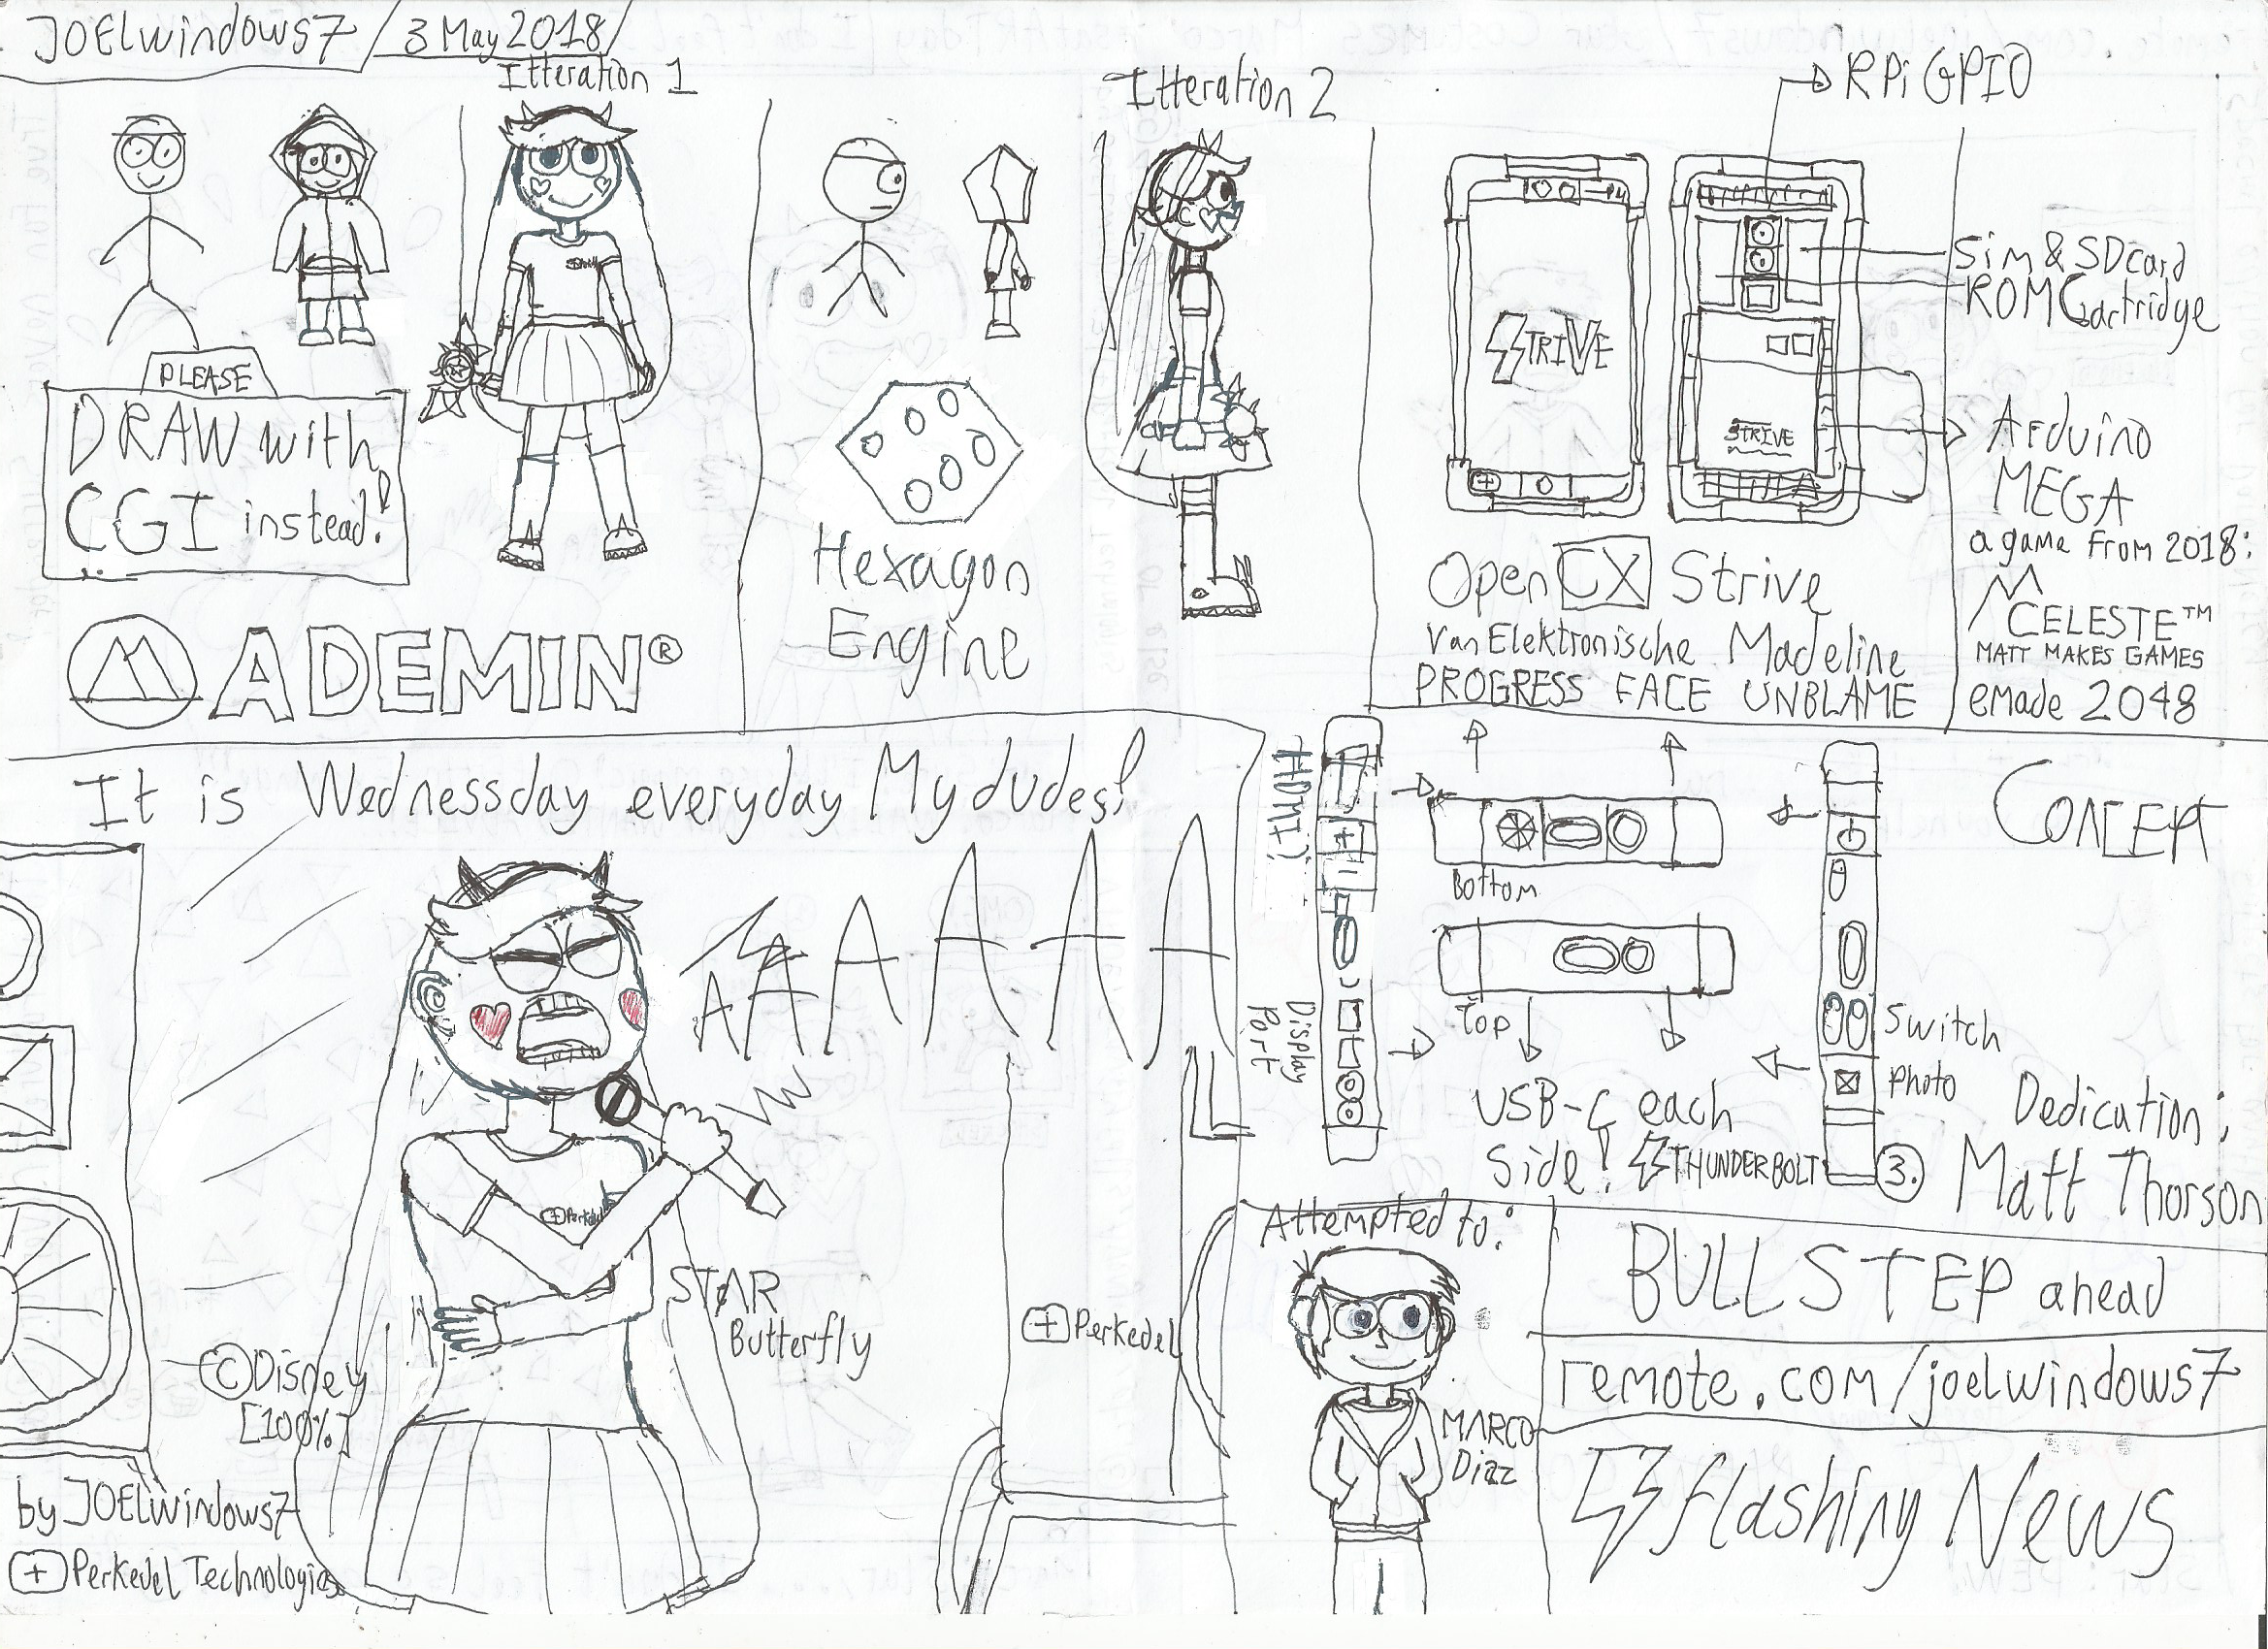 JOELwindows7 / 3 May 2018/
Itteration 1
Itteration 2
RPi GPIO
PLEASE
DRAW with
CGI instead!
ADEMIN®
Hexagon
Engine
STRIVE
STRIVE
Sim & SDcard
ROM Cartridge
Arduino
MEGA
a game from 2018:
CELESTE™
MATT MAKES GAMES
emade 2048
Open CX Strive
Van Elektronische Madeline
PROGRESS FACE UNBLAME
It is Wednessday everyday My dudes!
AAAAAAA
Perkedel
STAR
Butterfly
© Disney
[100%]
by JOELwindows7
+ Perkedel Technologies
+ Perkedel
HDMI
Display
Port
Bottom
Top
USB-C each
Side! THUNDERBOLT 3.
Switch
Photo
CONCEPT
Dedication:
Matt Thorson
Attempted to:
MARCO
Diaz
BULL STEP ahead
remote.com/joelwindows7
flashing News